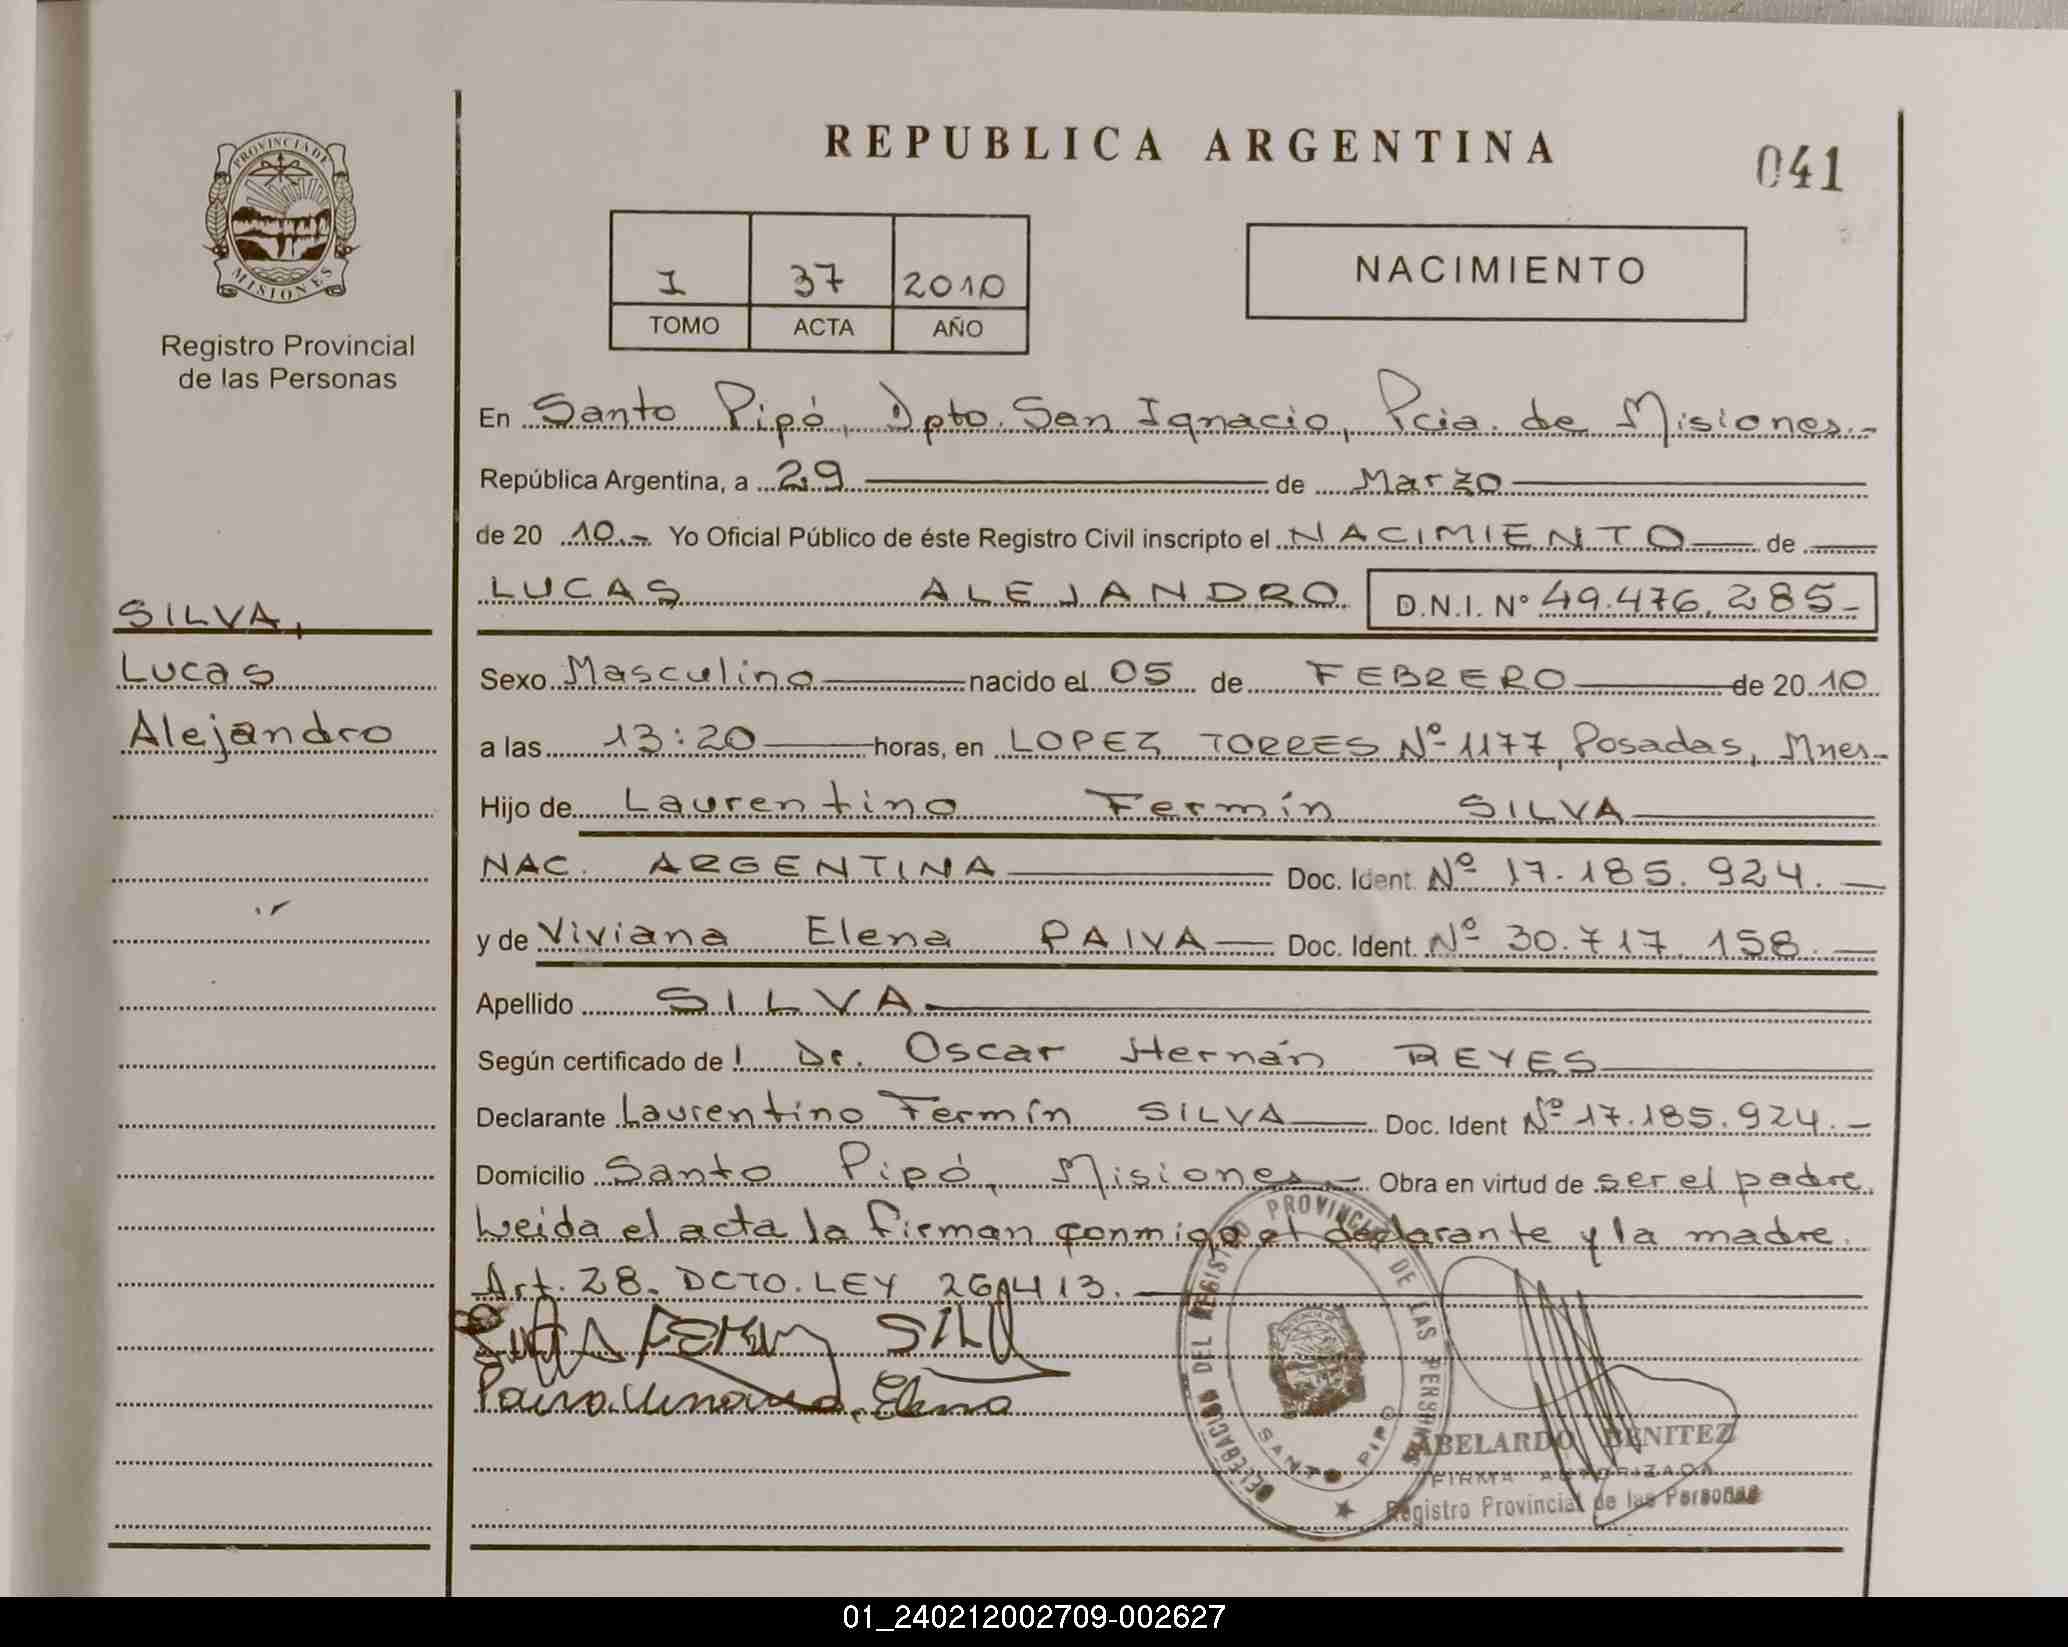 REPUBLICA ARGENTINA
041
PROVINCIA DE
MISIONES
Registro Provincial
de las Personas
I 37 2010
TOMO ACTA AÑO
NACIMIENTO
En Santo Pipó, Dpto. San Ignacio, Pcia. de Misiones.-
República Argentina, a 29 de Marzo
de 20 10.- Yo Oficial Público de éste Registro Civil inscripto el NACIMIENTO de
LUCAS ALEJANDRO D.N.I. N° 49.476.285-
SILVA,
Lucas
Alejandro
Sexo Masculino nacido el 05 de FEBRERO de 20 10
a las 13:20 horas, en LOPEZ TORRES Nº 1177, Posadas, Mnes-
Hijo de Laurentino Fermín SILVA
NAC. ARGENTINA Doc. Ident. Nº 17.185.924.-
y de Viviana Elena PAIVA Doc. Ident. Nº 30.717.158.-
Apellido SILVA
Según certificado de l Dr. Oscar Hernán REYES
Declarante Laurentino Fermín SILVA Doc. Ident Nº 17.185.924.-
Domicilio Santo Pipó, Misiones- Obra en virtud de ser el padre.
Leida el acta la firman conmigo el declarante y la madre.
Art. 28. DCTO. LEY 26.413.
FERMIN SILV
Paiva Viviana, Elena
DELEGACION DEL REGISTRO PROVINCIAL DE LAS PERSONAS
SANTO PIPO
ABELARDO BENITEZ
FIRMA AUTORIZADA
Registro Provincial de las Personas
01_240212002709-002627